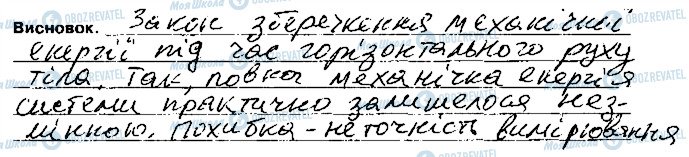 Висновок. Закон збереження механічної
енергії під час горізонтального руху
тіла. Так, повна механічка енергія
системи практично залишелося нез-
мінною. Похибка - неточність вимірювання